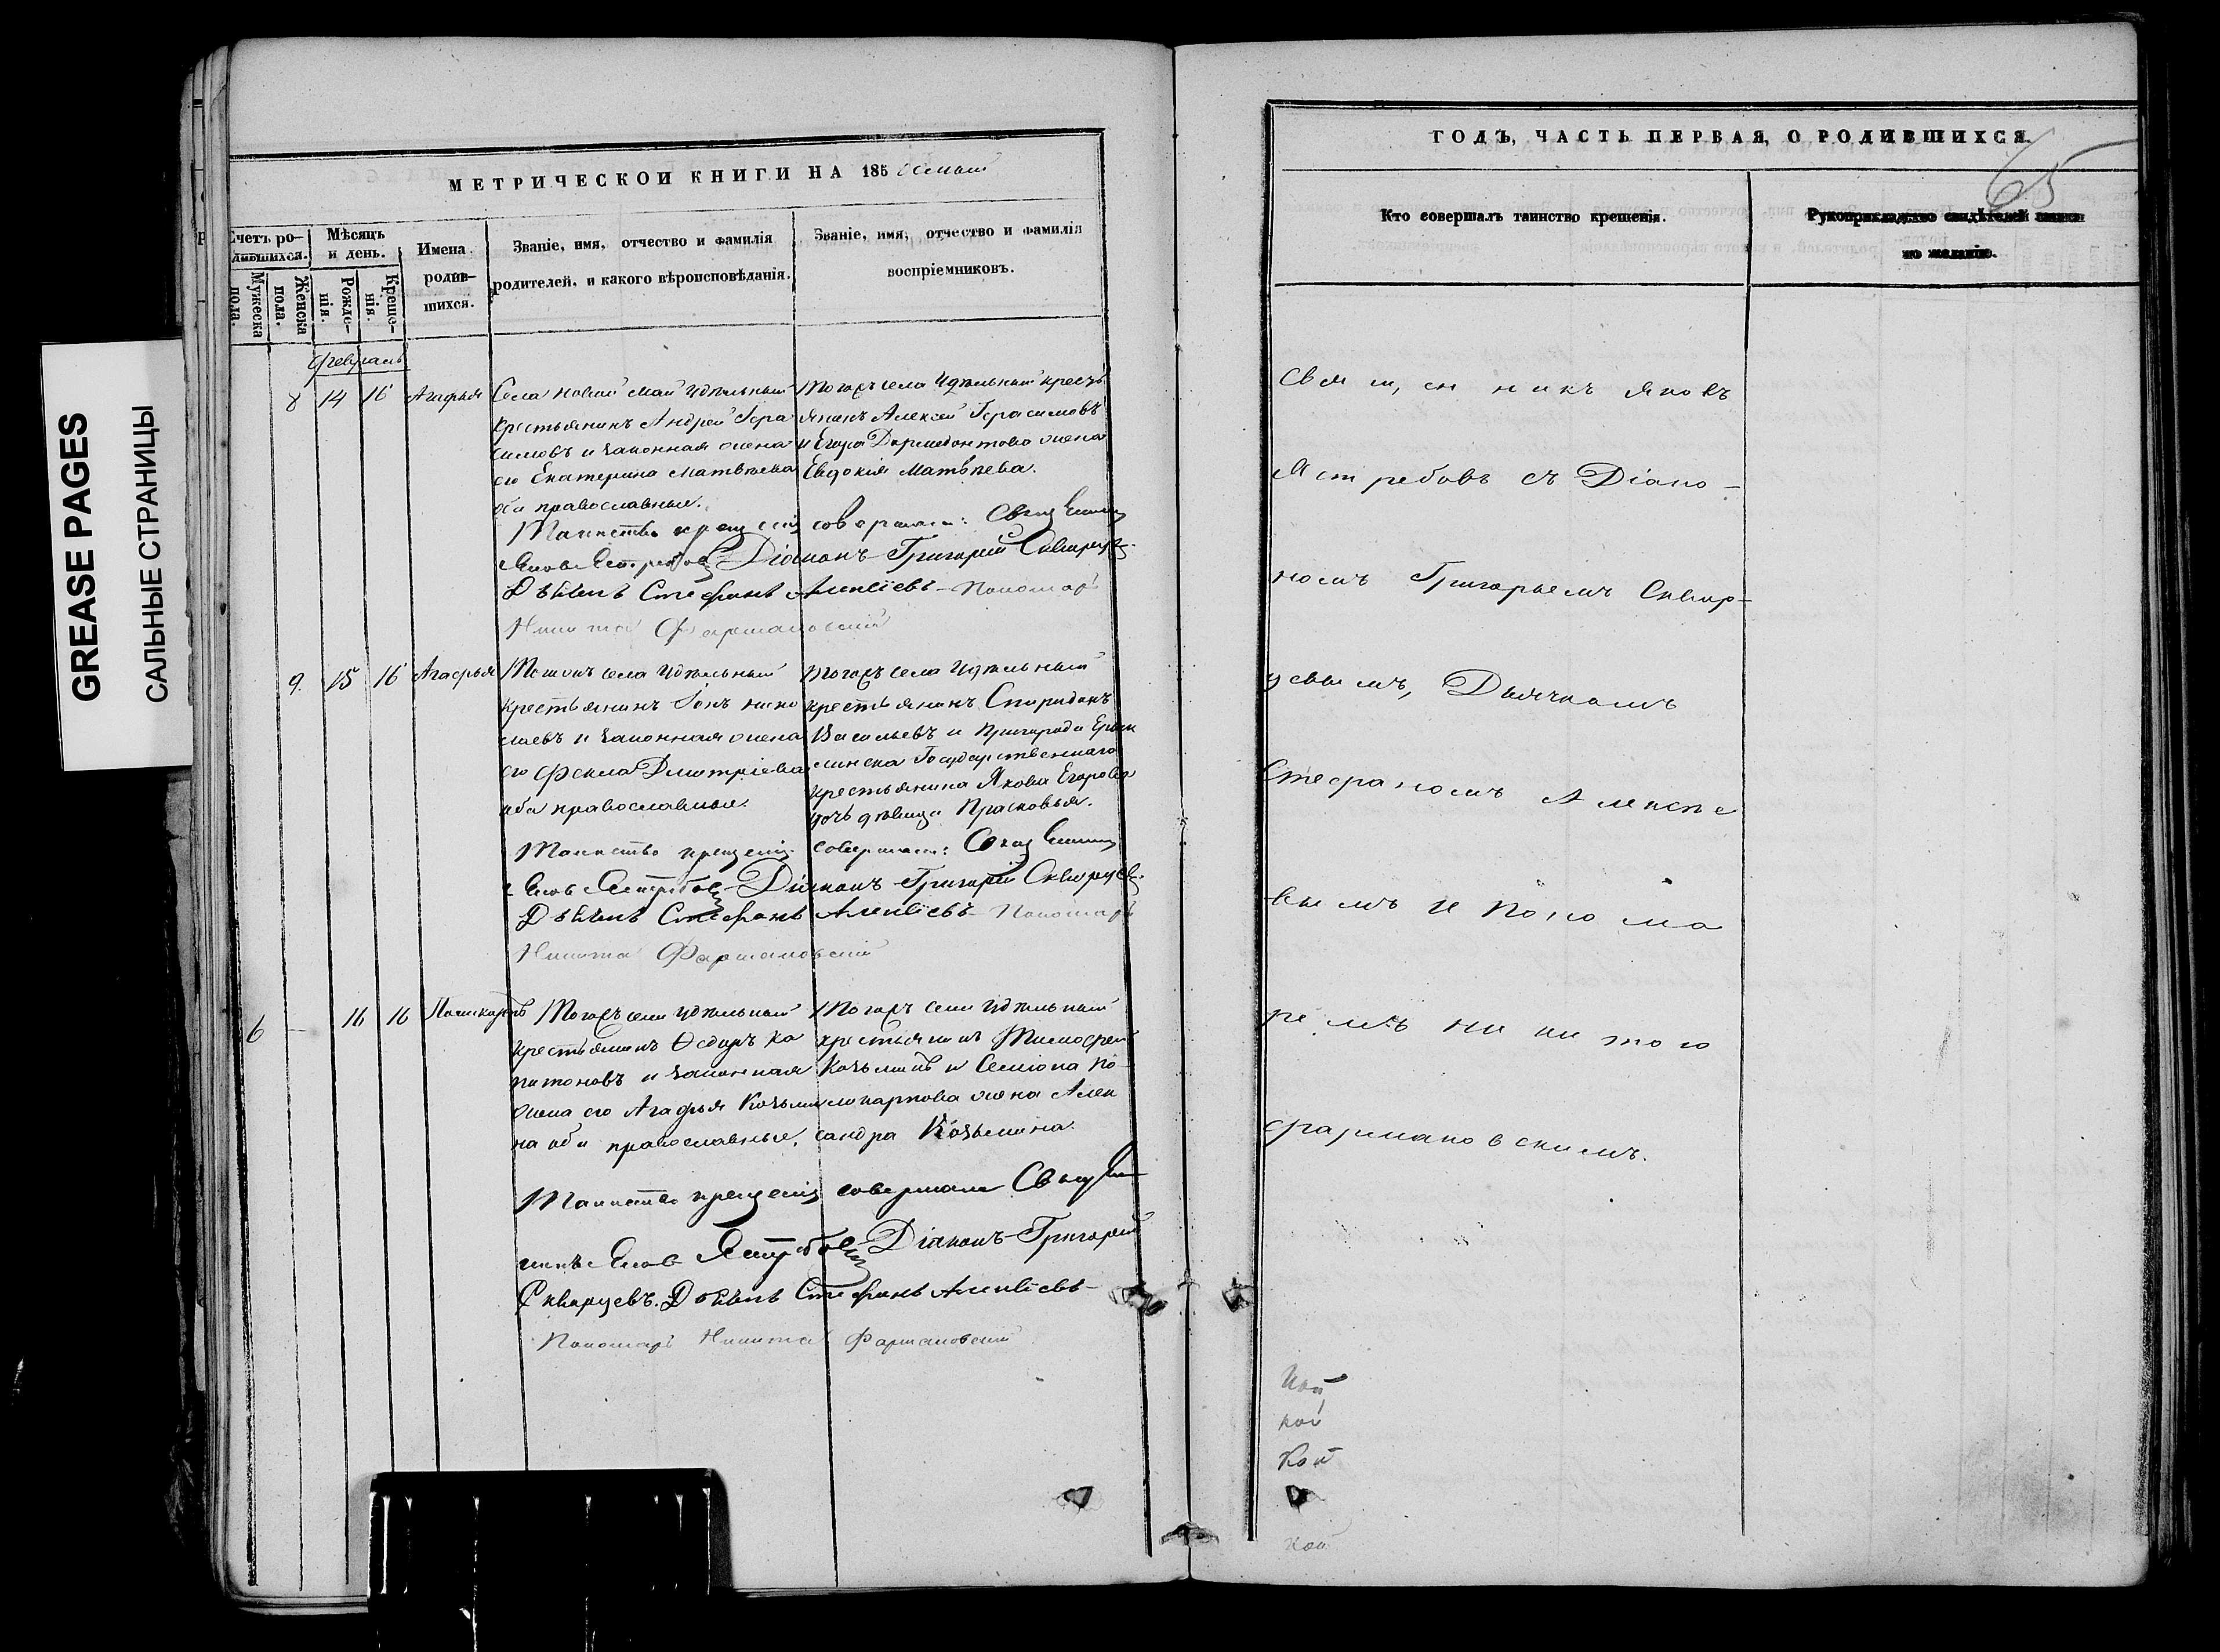 GREASE PAGES
САЛЬНЫЕ СТРАНИЦЫ
МЕТРИЧЕСКОЙ КНИГИ НА 185 осмый
Счетъ ро-
дившихся.
Мужеска
пола.
Женска
пола.
Мѣсяцъ
и день.
Рожде-
нія.
Креще-
нія.
Имена
родив-
шихся.
Званіе, имя, отчество и фамилія
родителей, и какого вѣроисповѣданія.
Званіе, имя, отчество и фамилія
воспріемниковъ.
Февраль
8 14 16 Агафья
Села Новой Маи Удѣльный
крестьянинъ Андрей Гера
симовъ и законная жена
его Екатерина Матвѣева
оба православные.
Тогожъ села Удѣльный кресть
янинъ Алексей Герасимовъ
и Егора Дормедонтова жена
Евдокия Матвѣева.
Таинство крещенія совершали: Священникъ
Яковъ Ястребовъ Діаконъ Григорій Скворцевъ
Дьячекъ Стефанъ Алексіевъ Пономарь
Никита Фармаковскій
9. 15 16 Агафья
Тогожъ села Удѣльный
крестьянинъ Іонъ Нико
лаевъ и законная жена
его Фекла Димитріева
оба православные.
тогожъ села Удѣльный
крестьянинъ Спиридонъ
Васильевъ и Пригорода Ерык
линска Государственнаго
крестьянина Якова Егорова
дочь дѣвица Прасковья.
Таинство крещенія совершали: Священникъ
Яковъ Ястребовъ Діаконъ Григорій Скворцевъ
Дьячекъ Стефанъ Алексіевъ Пономарь
Никита Фармаковскій
6 - 16 16 Поликарпъ
Тогожъ села Удѣльный
крестьянинъ Ѳедоръ Ка
питоновъ и законная
жена его Агафья Козьми
на оба православные.
Тогожъ села Удѣльный
крестьянинъ Тимофей
Козьминъ и Семіона По
ликарпова жена Алек
сандра Козьмина.
Таинство крещенія совершали Священ
никъ Яковъ Ястребовъ Діаконъ Григорій
Скворцевъ. Дьячекъ Стефанъ Алексіевъ
Пономарь Никита Фармаковскій
ГОДЪ, ЧАСТЬ ПЕРВАЯ, О РОДИВШИХСЯ.
65
Кто совершалъ таинство крещенія.
Рукоприкладство свидѣтелей записи
по желанію.
Священникъ Яковъ
Ястребовъ съ Діако-
номъ Григорьемъ Сквор-
цевымъ, Дьячкомъ
Стефаномъ Алексѣе
вымъ и Понома
ремъ Никитою
Фармаковскимъ.
кой
Кой
кой